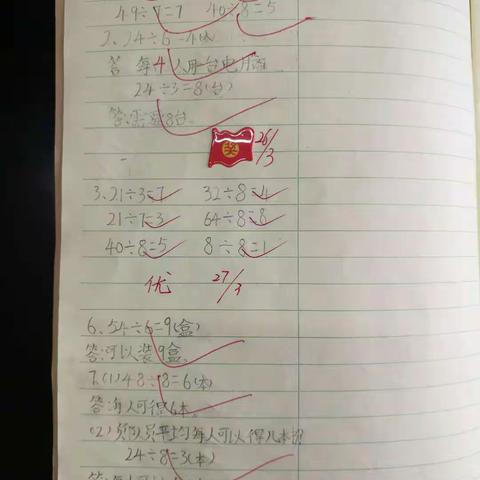 49÷7=7 40÷8=5
2、24÷6=4(人)
答 每4人用一台电
24÷3=8(台)
答:需要8台。
奖
26/3
3、21÷3=7 32÷8=4
21÷7=3 64÷8=8
40÷8=5 8÷8=1
优 27/3
6、54÷6=9(盒)
答:可以装9盒。
7、(1)48÷8=6(本)
答:每人可得6本。
(2) 平均每人可以得几本
24÷8=3(本)